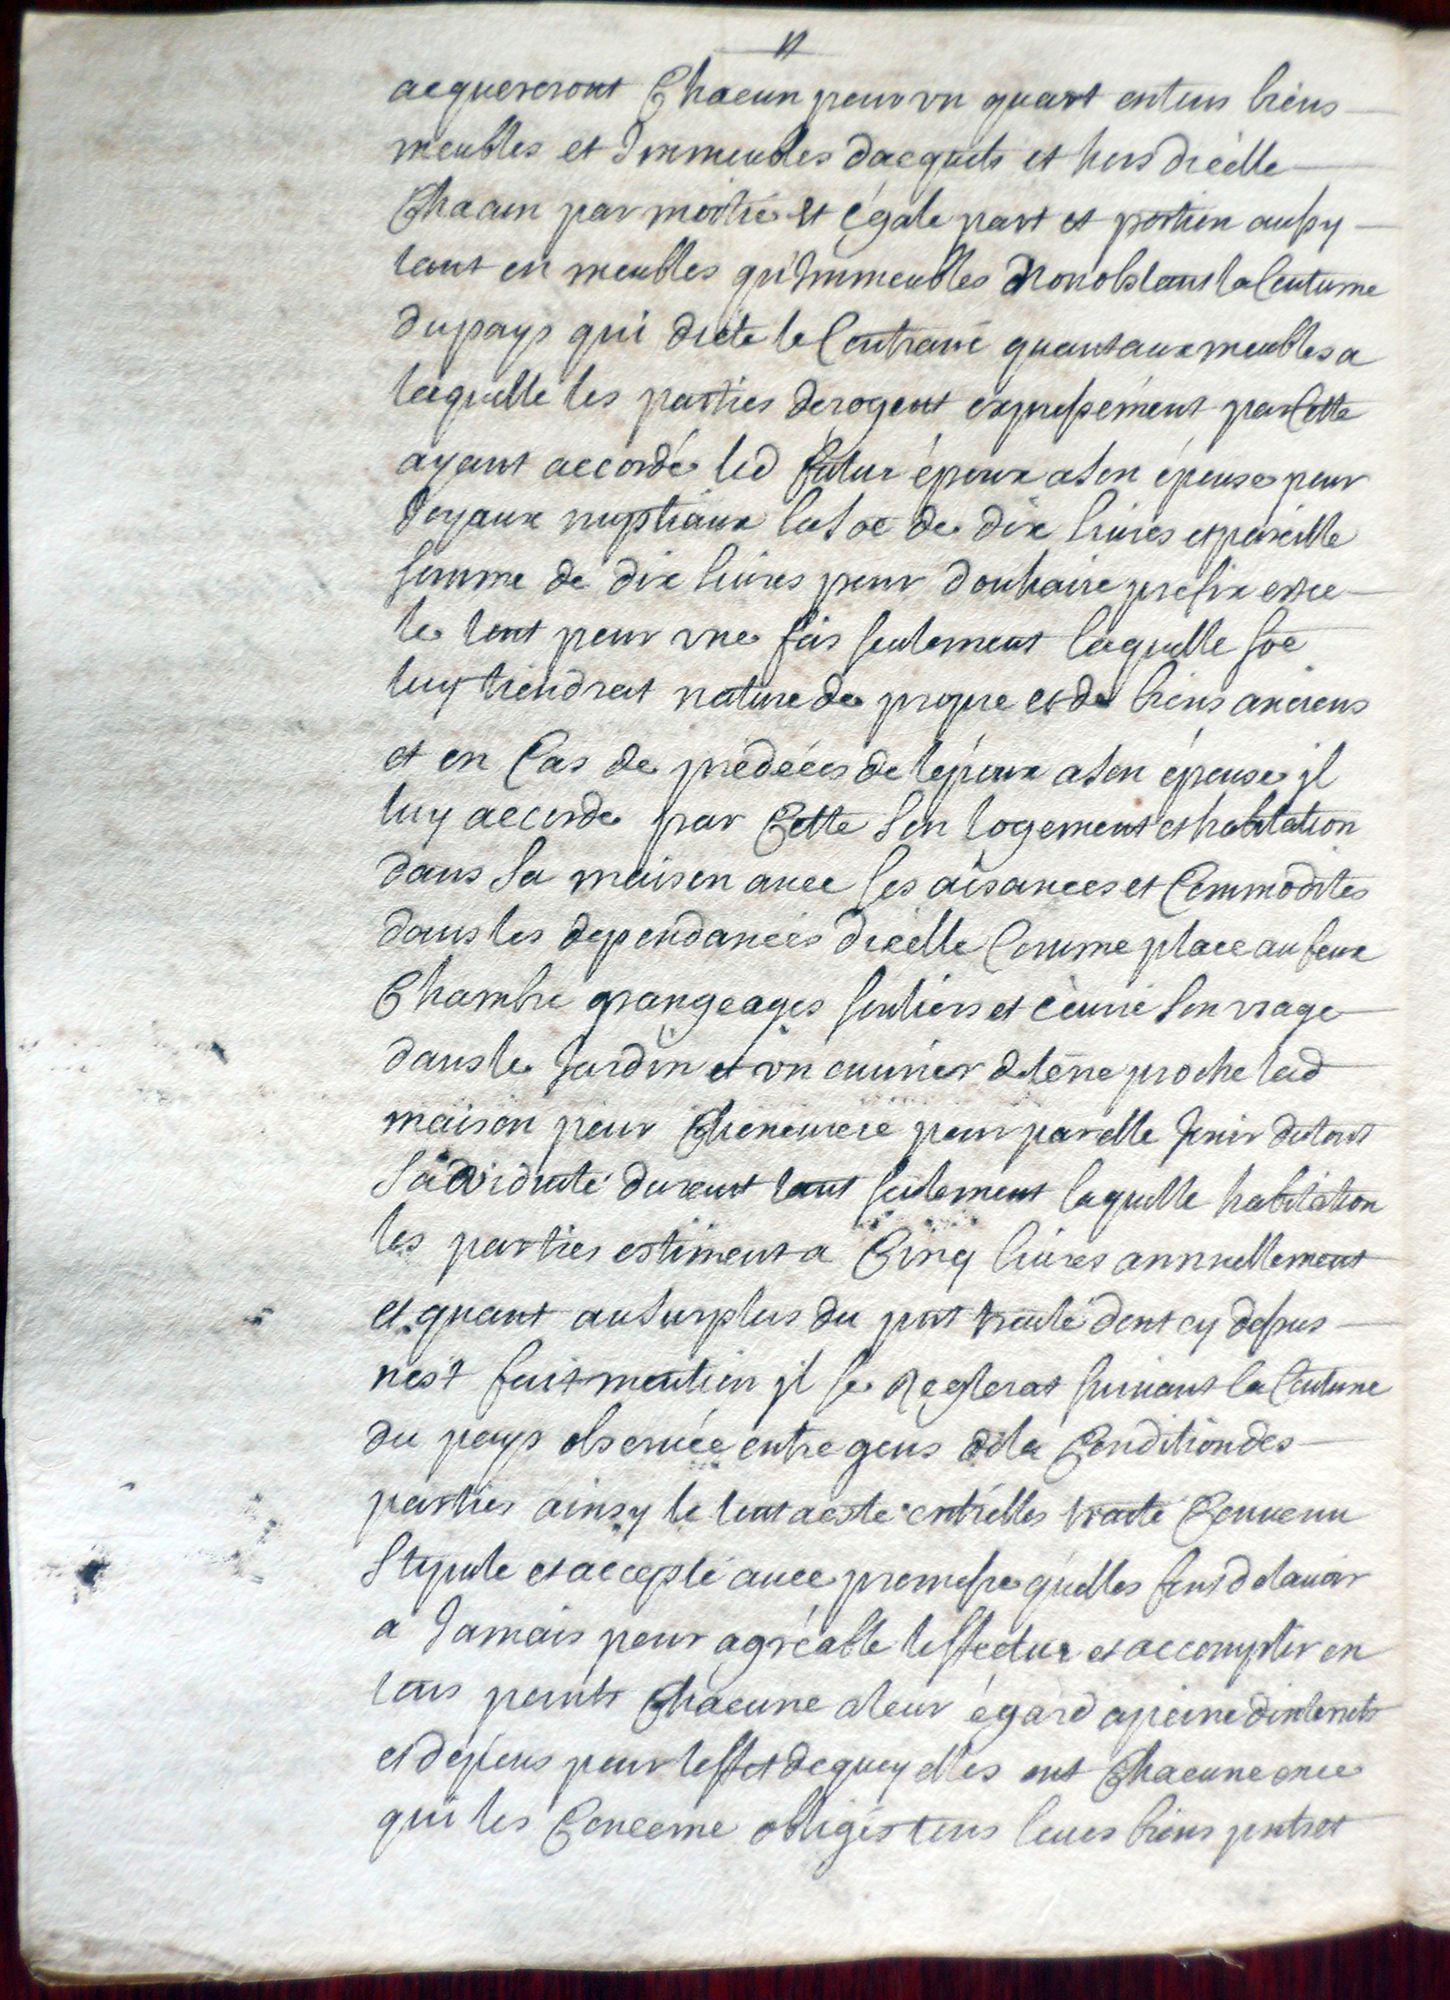 acquereront Chacun pour vn quart en tous biens
meubles et Immeubles dacquets et hors dicelle
Chacun par moitié et égale part et portion aussy
tant en meubles qu'Immeubles Nonobstant la Coutume
du pays qui dicte le Contraire quant aux meubles a
laquelle les parties derogent expressément par Cette
ayant accordé led futur époux a son épouse pour
Joyaux nuptiaux la soe de dix liures et pareille
somme de dix liures pour douhaire prefix et ce
le tout pour vne fois seulement laquelle soe
luy tiendrat nature de propre et de biens anciens
et en Cas de prédécés de lépoux a son épouse jl
luy accorde par Cette son logement et habitation
dans sa maison auec les aisances et Commodites
dans les dependances dicelle Comme place au feux
Chambre grangeages soutiers et écurie son vsage
dans le Jardin et vn ouurier de terre proche lad
maison pour Cheneuiere pour par elle Jouir du tout
sa viduité durant tant seulement laquelle habitation
les parties estiment a Cinq liures annuellement
et quant au surplus du pnt traité dont cy dessus
nest fait mention jl se Reglerat suiuant la Coutume
du pays obseruée entre gens de la Condition des
parties ainsy le tout a esté entrelles traité Conuenu
Stipulé et accepté auec promesse quelles font de lauoir
a Jamais pour agréable leffectuer et accomplir en
tous points Chacune a leur égard a peine dinterets
et dépens pour leffet de quoy elles ont Chacune en ce
qui les Concerne obligés tous leurs biens pnts et